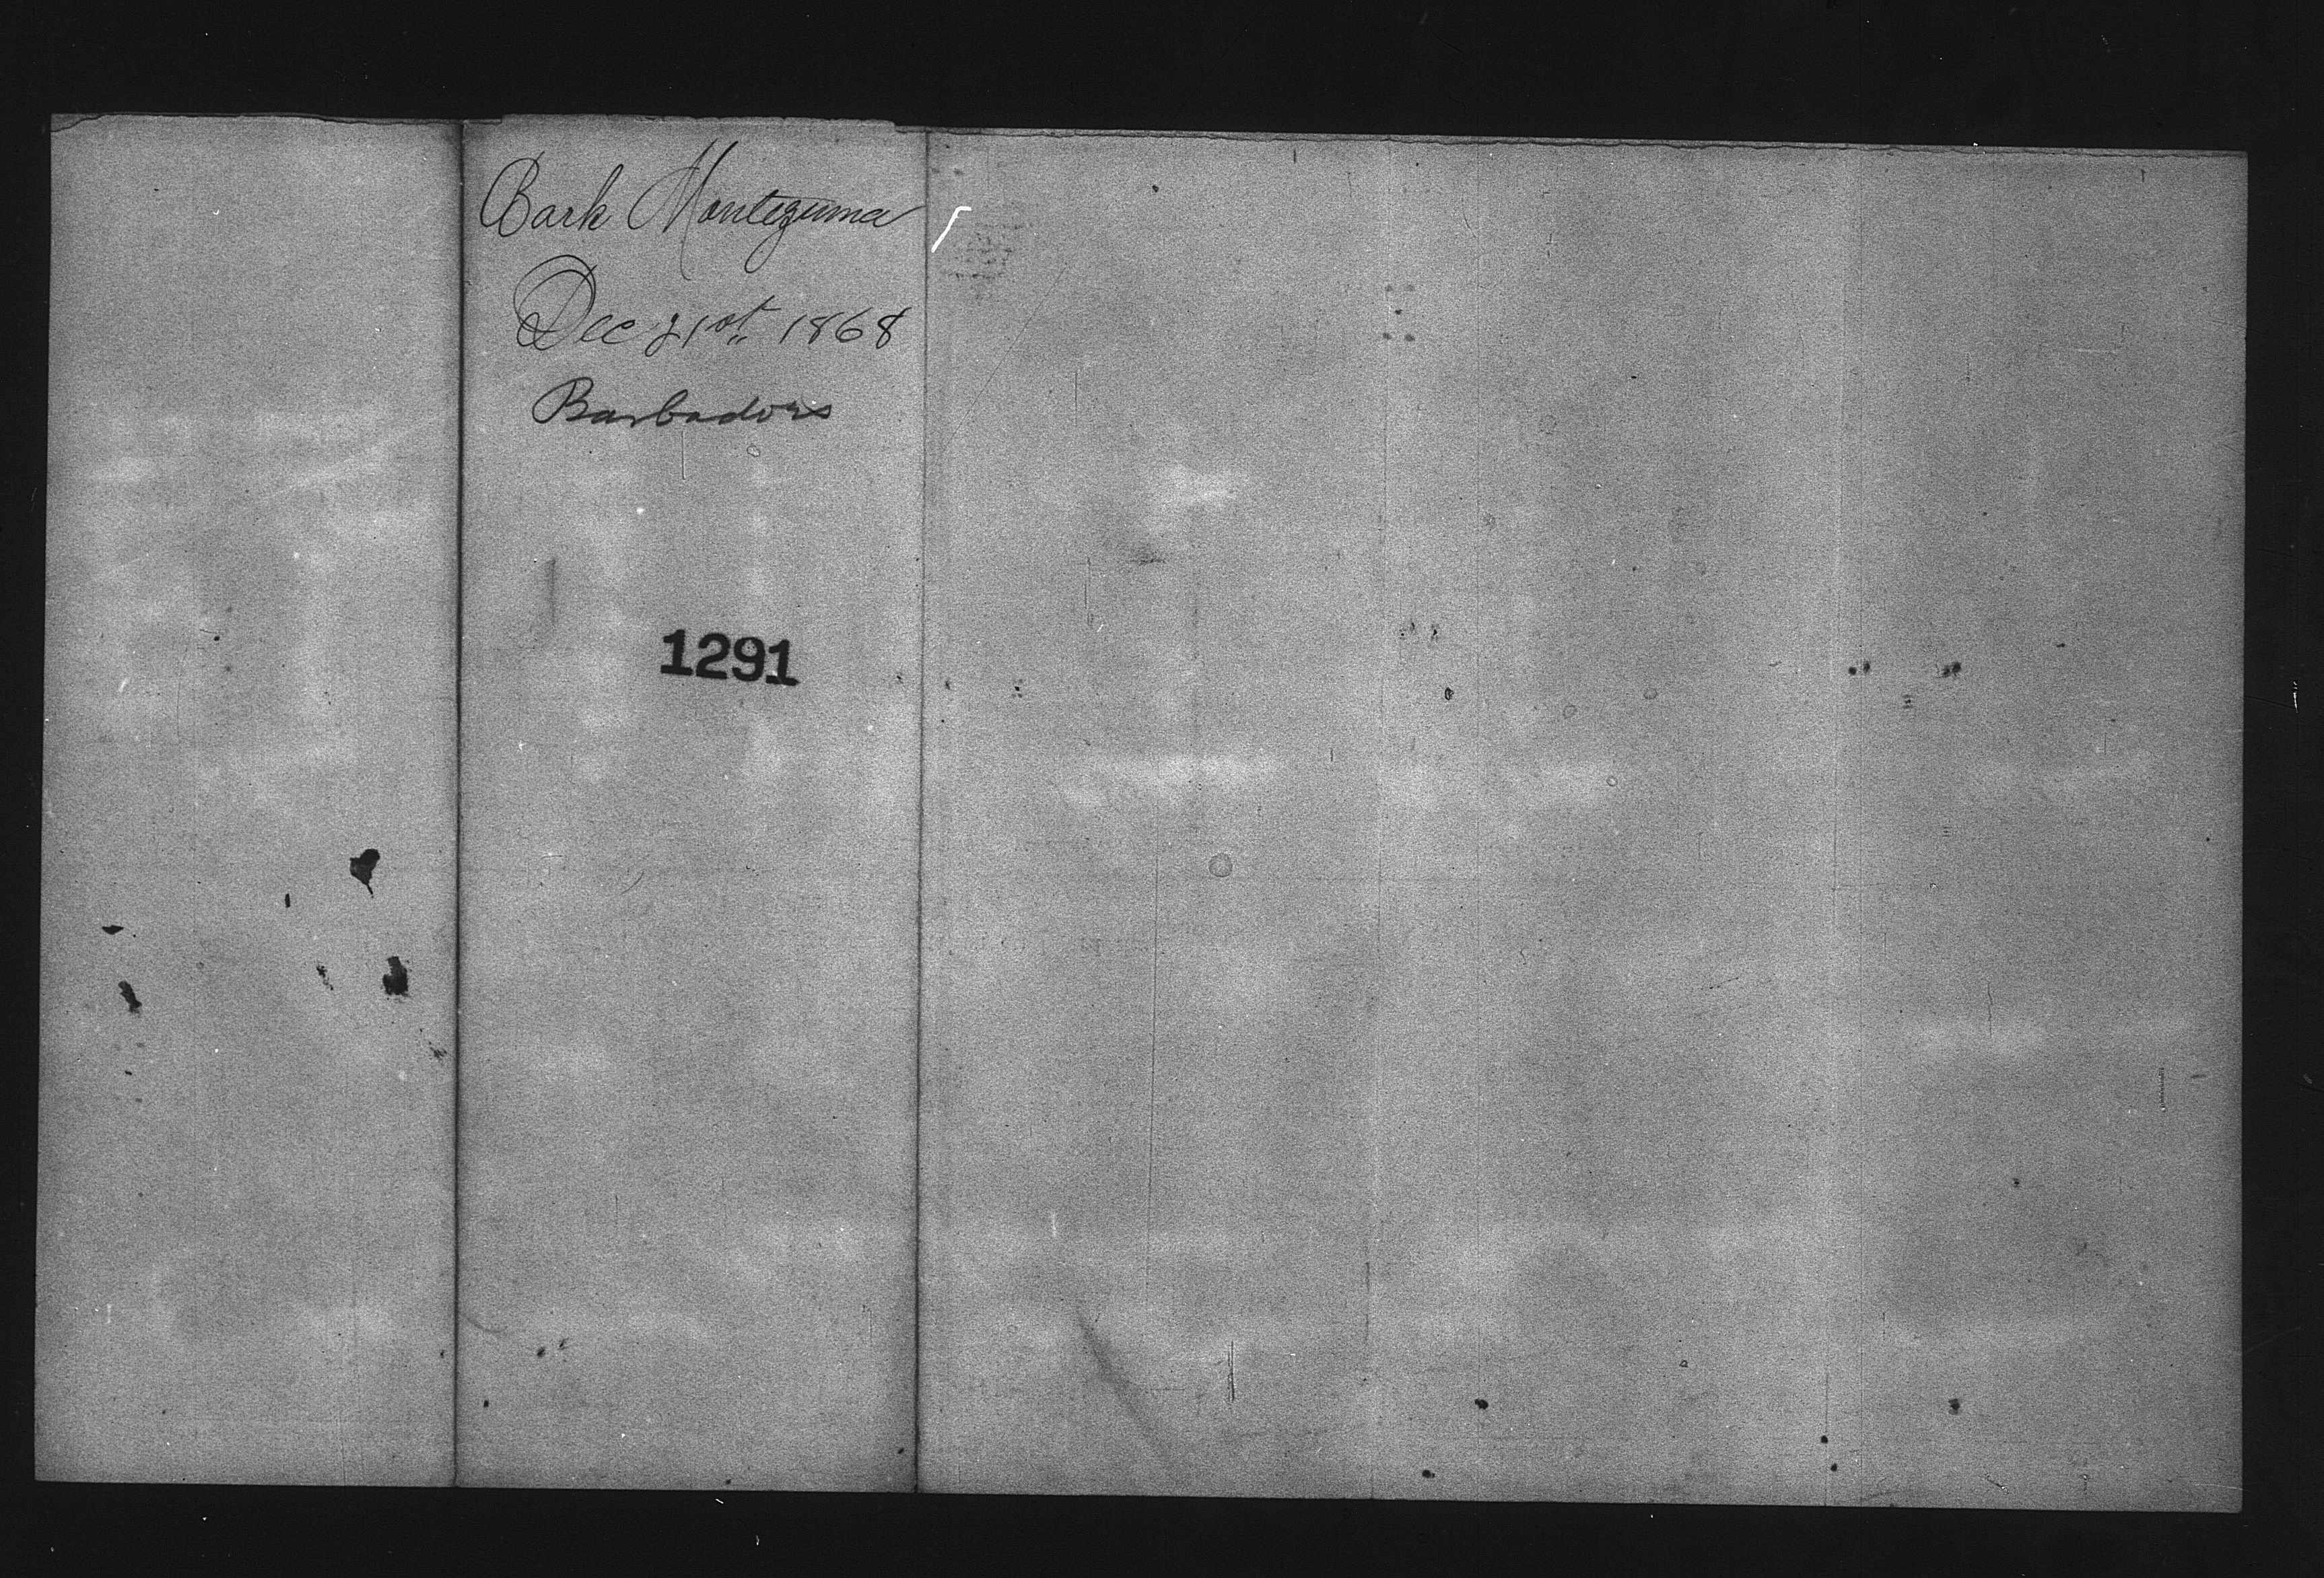 Bark Montezuma
Dec 21st 1868
Barbadoes
1291